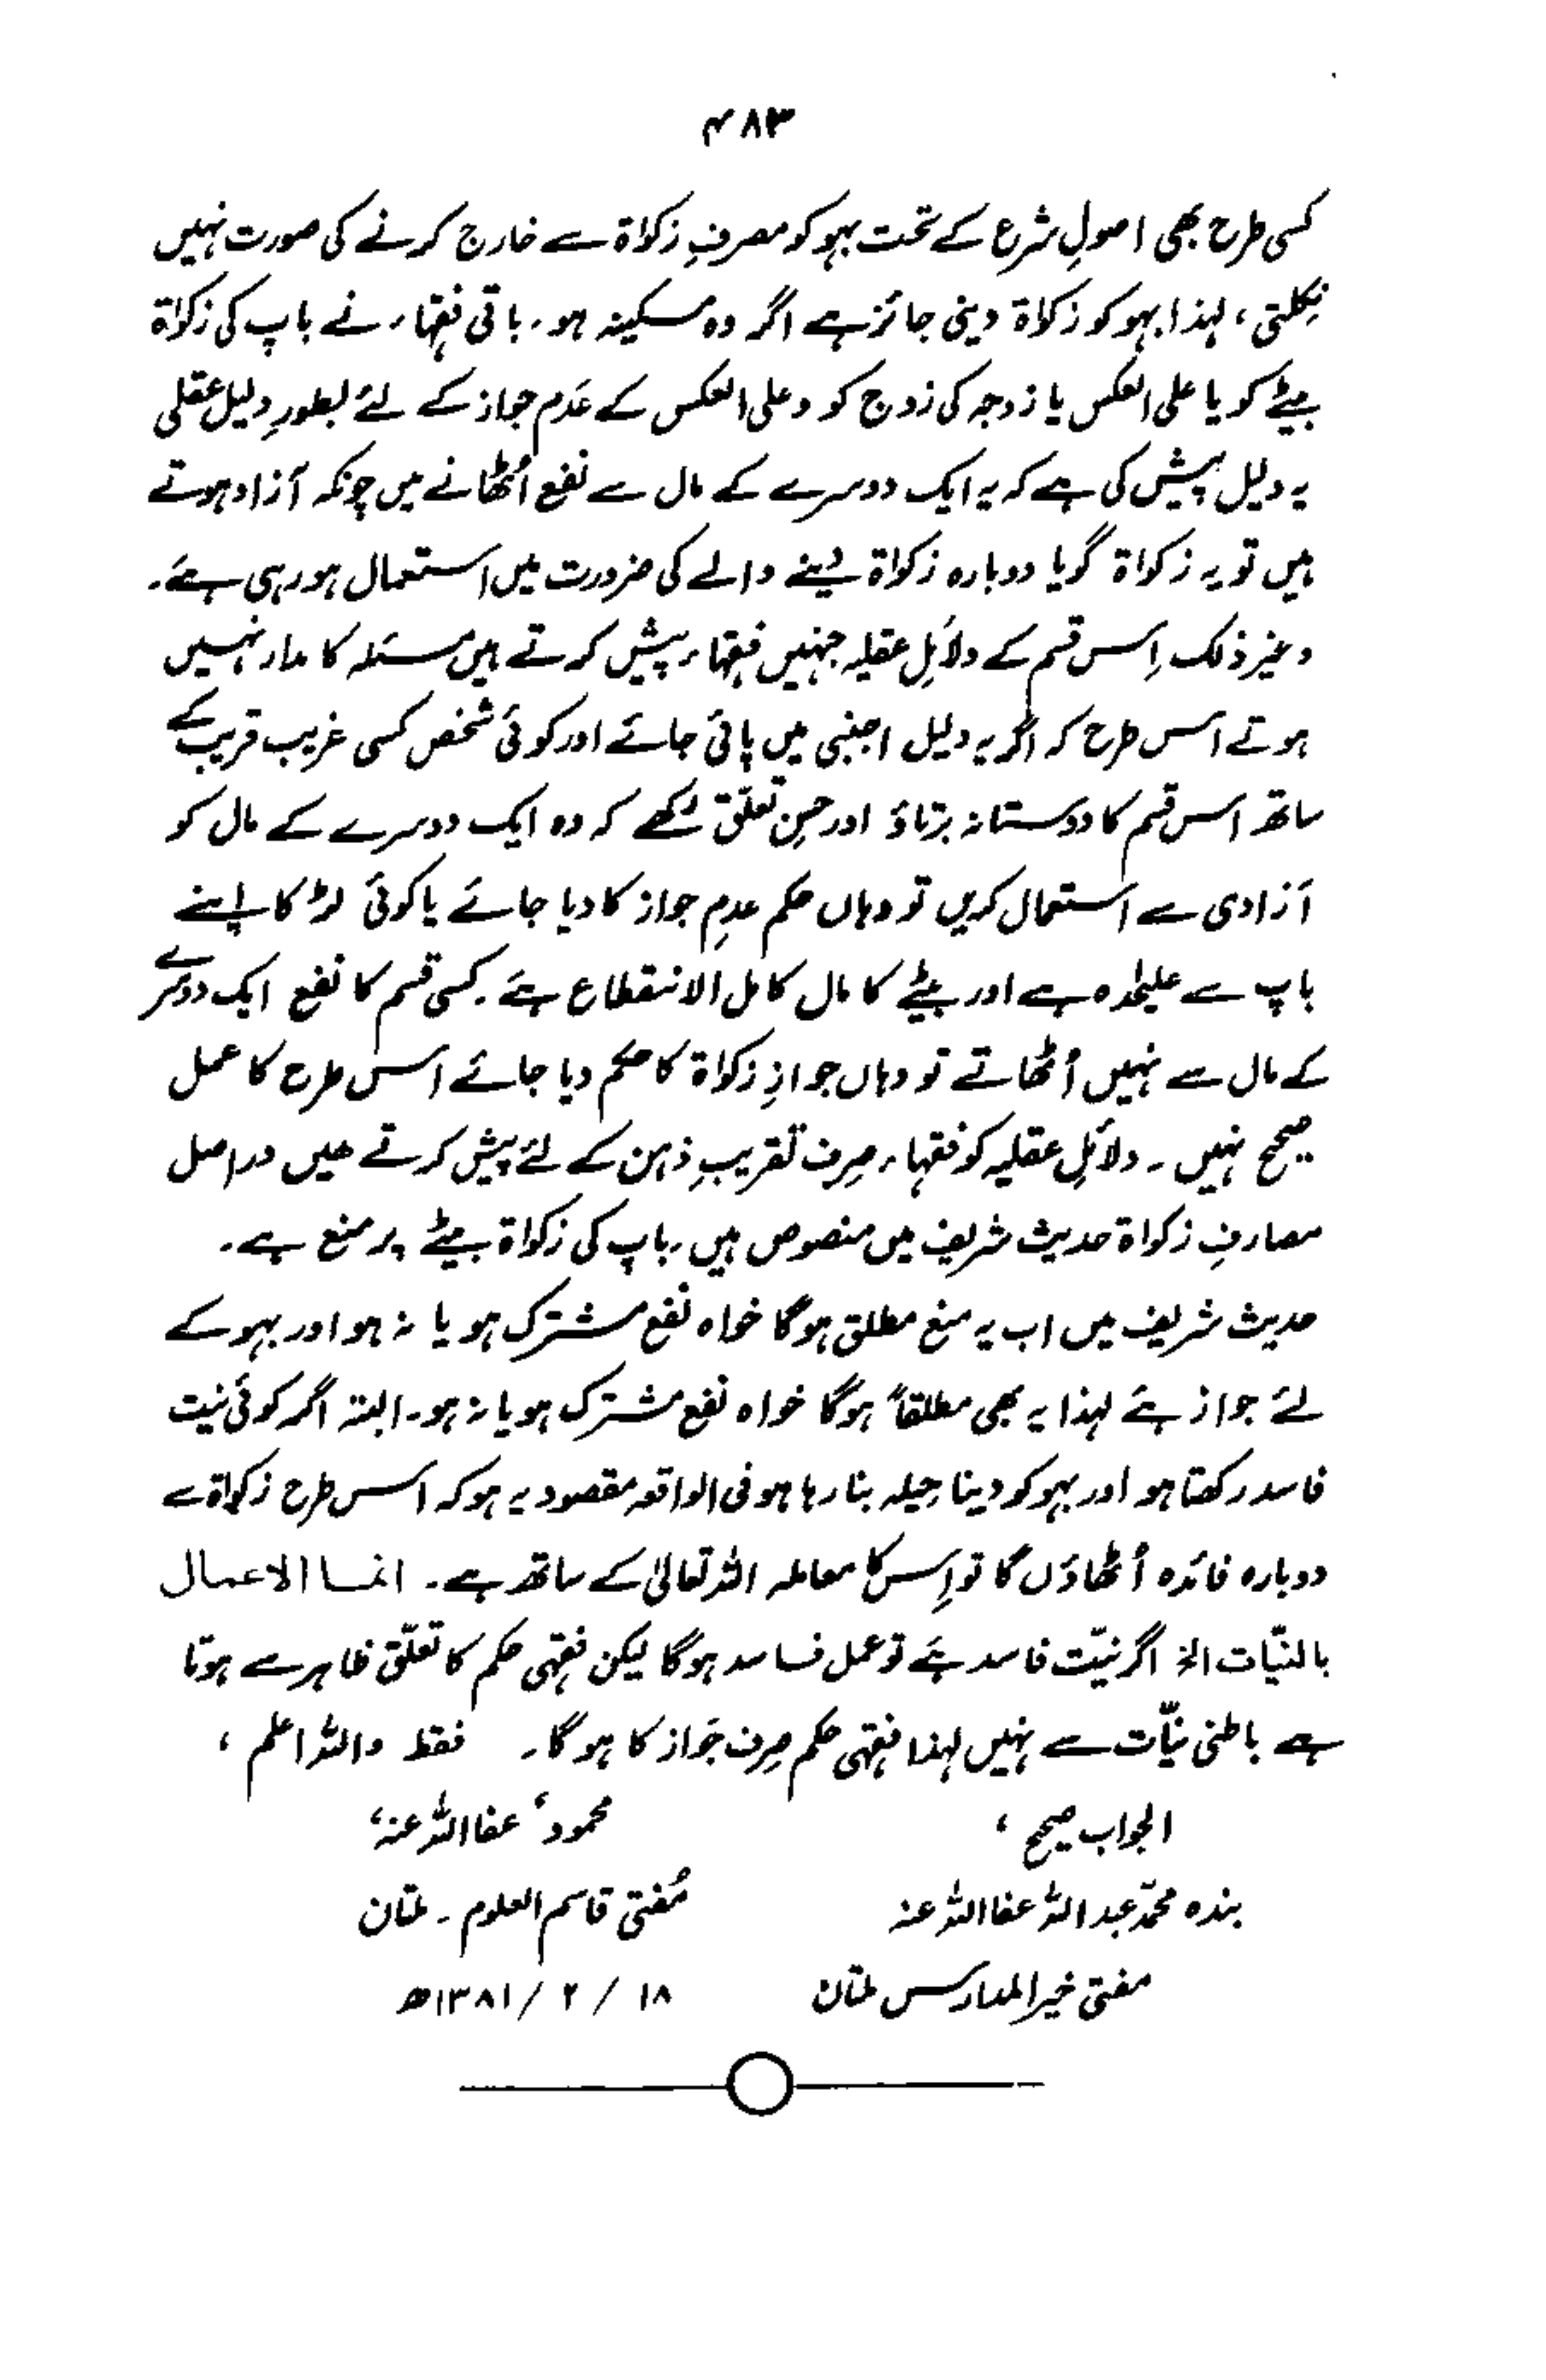 ۴۸۳
کسی طرح بھی اصولِ شرع کے تحت بہو کو مصرفِ زکوٰۃ سے خارج کرنے کی صورت نہیں
نِکلتی، لہذا بہو کو زکوٰۃ دینی جائز ہے اگر وہ مسکینہ ہو۔ باقی فقہاء نے باپ کی زکوٰۃ
بیٹے کو یا علی العکس یا زوجہ کی زوج کو وعلی العکس کے عَدمِ جواز کے لئے بطورِ دلیل عقلی
یہ دلیل پیش کی ہے کہ یہ ایک دوسرے کے مال سے نفع اُٹھانے میں چونکہ آزاد ہوتے
ہیں تو یہ زکوٰۃ گویا دوبارہ زکوٰۃ دینے والے کی ضرورت میں استعمال ہو رہی ہے۔
وغیر ذلک اِس قسم کے دلائلِ عقلیہ جنہیں فقہاء پیش کرتے ہیں مسئلہ کا مدار نہیں
ہوتے اس طرح کہ اگر یہ دلیل اجنبی میں پائی جائے اور کوئی شخص کسی غریب قریب کے
ساتھ اس قسم کا دوستانہ برتاؤ اور حسنِ تعلّق رکھے کہ وہ ایک دوسرے کے مال کو
آزادی سے استعمال کریں تو وہاں حکم عدمِ جواز کا دیا جائے یا کوئی لڑکا اپنے
باپ سے علیٰحدہ ہے اور بیٹے کا مال کامل الانقطاع ہے۔ کسی قسم کا نفع ایک دوسرے
کے مال سے نہیں اُٹھاتے تو وہاں جوازِ زکوٰۃ کا حکم دیا جائے اس طرح کا عمل
صحیح نہیں۔ دلائلِ عقلیہ کو فقہاء صِرف تقریبِ ذہن کے لئے پیش کرتے ھیں دراصل
مصارفِ زکوٰۃ حدیث شریف میں منصوص ہیں۔ باپ کی زکوٰۃ بیٹے پر منع ہے۔
حدیث شریف میں اب یہ منع مطلق ہوگا خواہ نفع مشترک ہو یا نہ ہو اور بہو کے
لئے جواز ہے لہذا یہ بھی مطلقاً ہوگا خواہ نفع مشترک ہو یا نہ ہو۔ البتہ اگر کوئی نیت
فاسد رکھتا ہو اور بہو کو دینا حیلہ بنا رہا ہو فی الواقعہ مقصود یہ ہو کہ اس طرح زکوٰۃ سے
دوبارہ فائدہ اُٹھاؤں گا تو اِس کا معاملہ اللہ تعالیٰ کے ساتھ ہے۔ انما الاعمال
بالنیّات الخ اگر نیّت فاسد ہے تو عمل فاسد ہوگا لیکن فقہی حکم کا تعلّق ظاہر سے ہوتا
ہے باطنی نیّات سے نہیں لہذا فقہی حکم صِرف جَواز کا ہوگا۔ فقط واللہ اعلم،
الجواب صحیح، محمود عفا اللہ عنہ،
بندہ محمّد عبد اللہ عفا اللہ عنہ مُفتی قاسم العلوم۔ ملتان
مفتی خیر المدارس ملتان ۱۸ / ۲ / ۱۳۸۱ھ